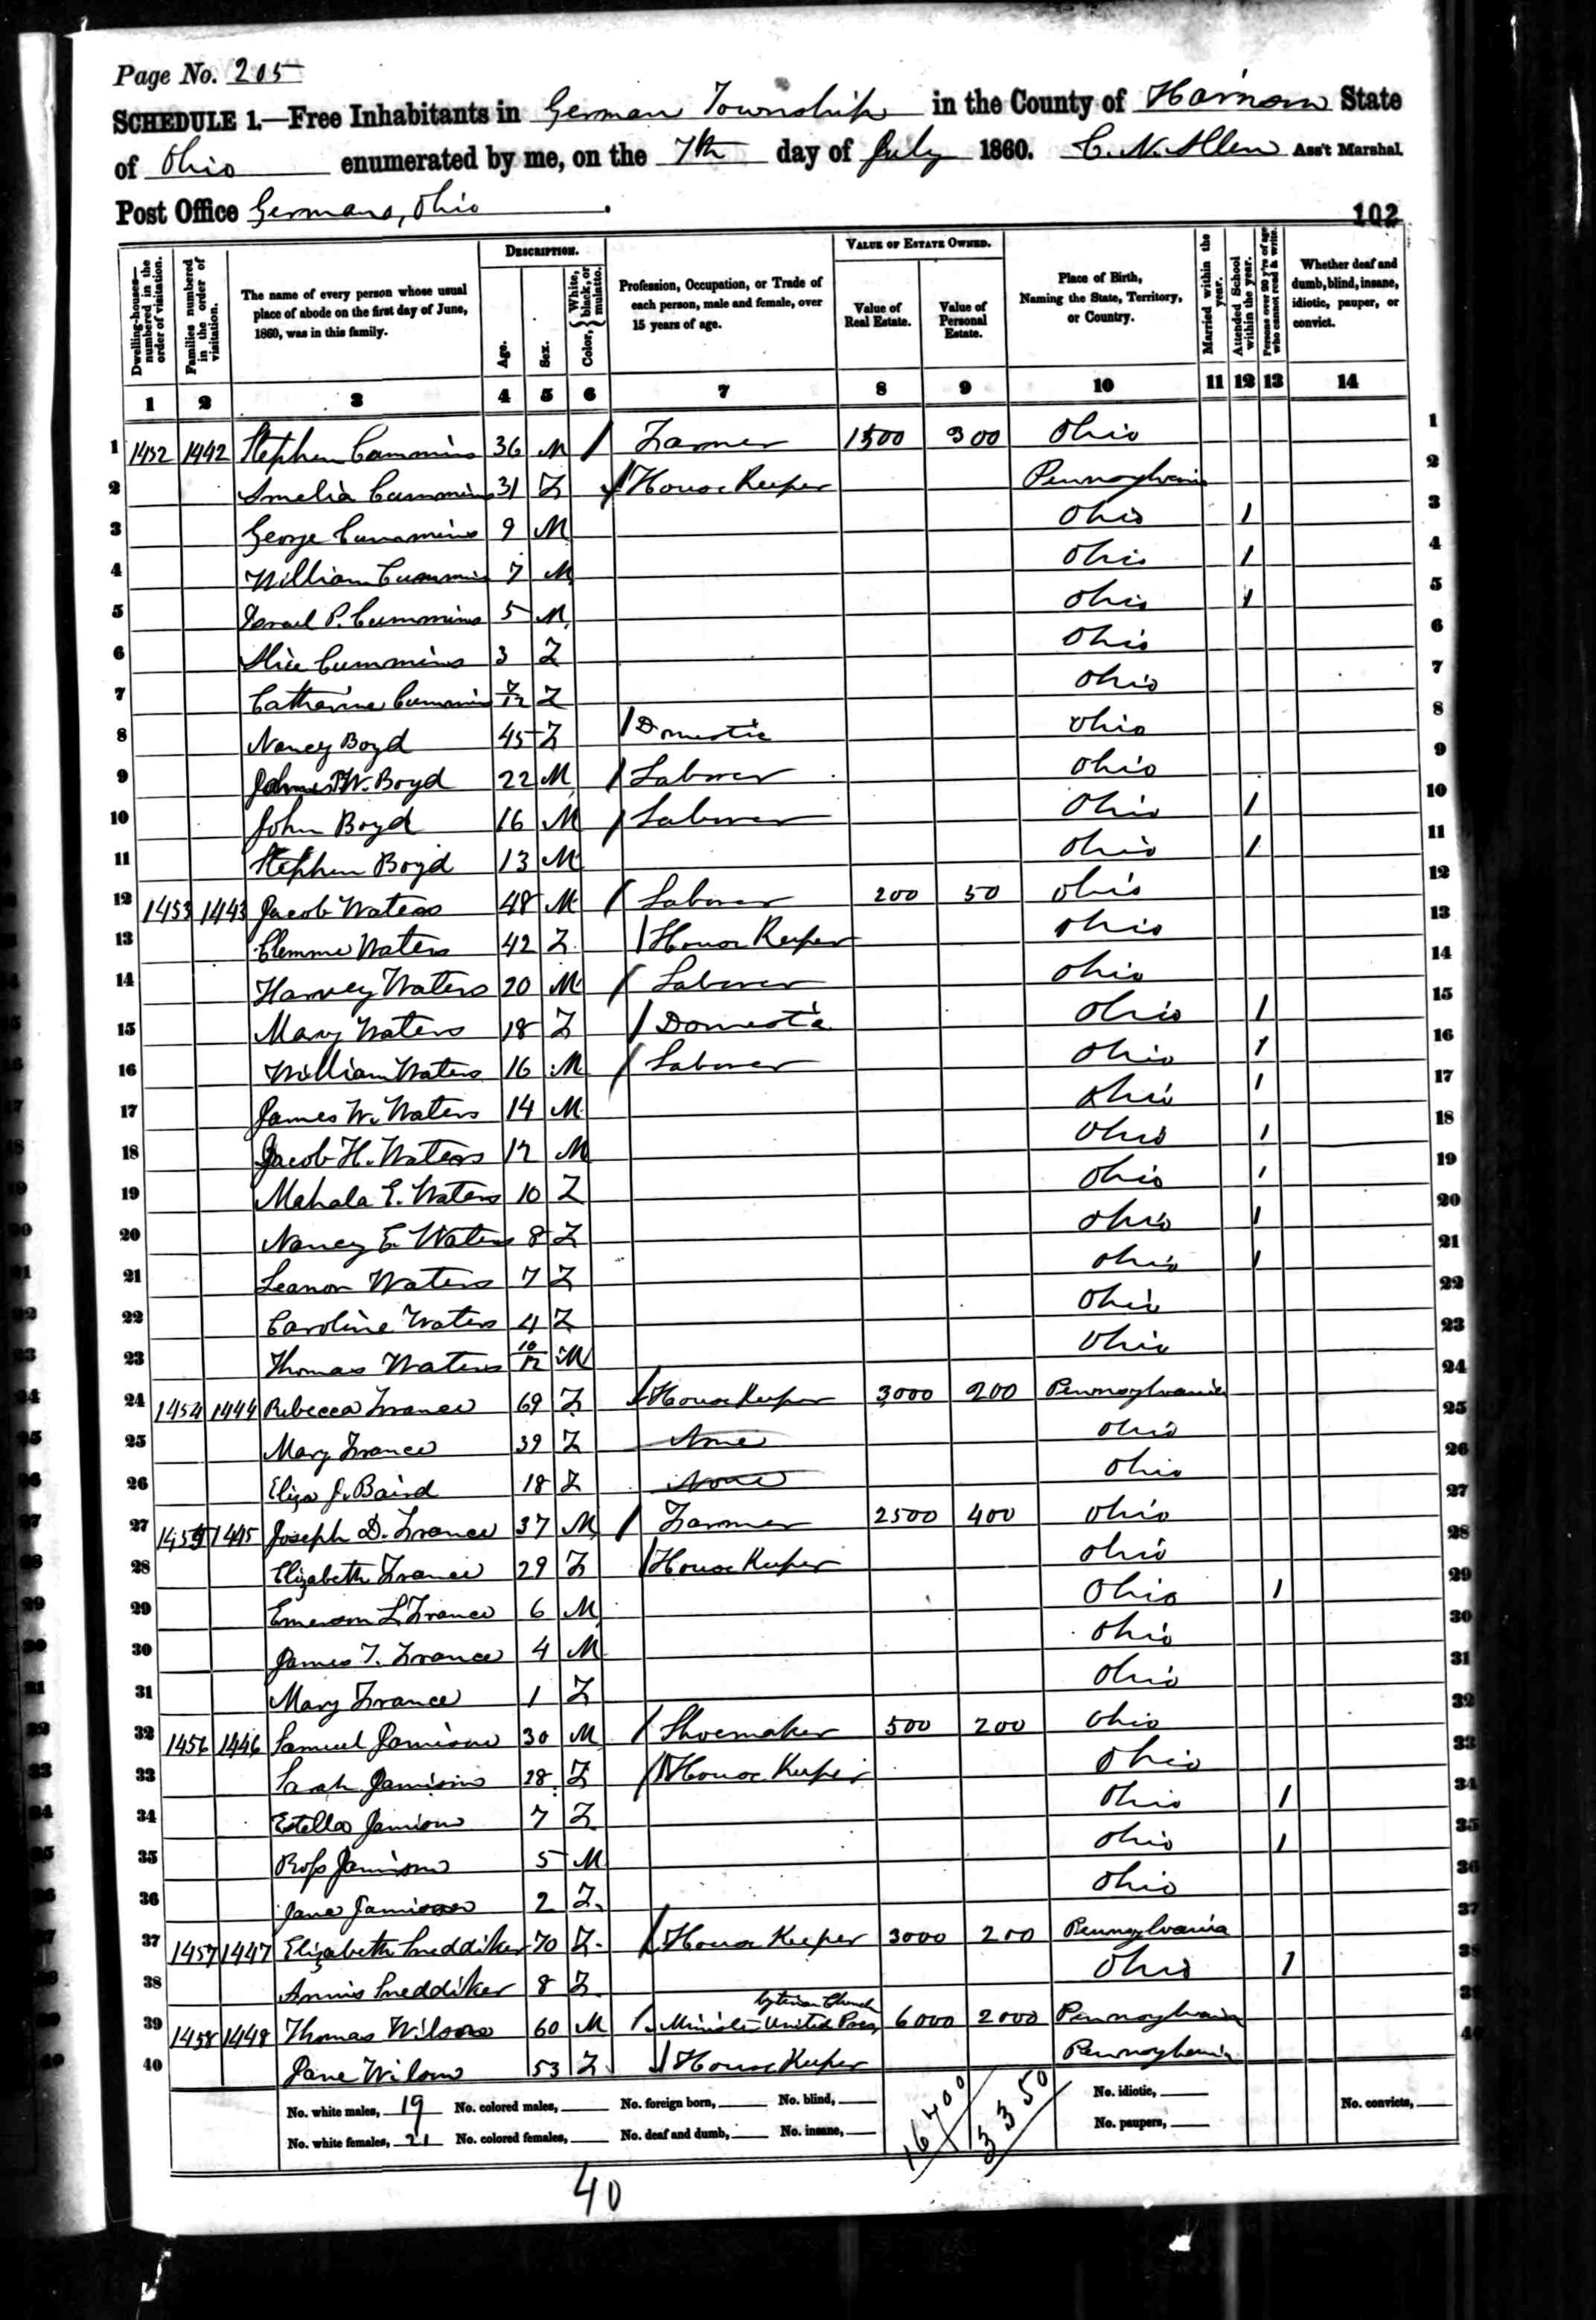 Page No. 205
SCHEDULE 1.—Free Inhabitants in German Township in the County of Harrison State
of Ohio enumerated by me, on the 7th day of July 1860. C. N. Allen Ass't Marshal.
Post Office Germano, Ohio.
102
Dwelling-houses—numbered in the order of visitation.
Families numbered in the order of visitation.
The name of every person whose usual place of abode on the first day of June, 1860, was in this family.
DESCRIPTION.
Age.
Sex.
Color, { White, black, or mulatto.
Profession, Occupation, or Trade of each person, male and female, over 15 years of age.
VALUE OF ESTATE OWNED.
Value of Real Estate.
Value of Personal Estate.
Place of Birth, Naming the State, Territory, or Country.
Married within the year.
Attended School within the year.
Persons over 20 y'rs of age who cannot read & write.
Whether deaf and dumb, blind, insane, idiotic, pauper, or convict.
1 2 3 4 5 6 7 8 9 10 11 12 13 14
1 1452 1442 Stephen Cummins 36 M / Farmer 1500 300 Ohio 1
2 Amelia Cummins 31 F / House Keeper Pennsylvania 2
3 George Cummins 9 M Ohio 1 3
4 William Cummins 7 M Ohio 1 4
5 Israel P. Cummins 5 M Ohio 1 5
6 Alice Cummins 3 F Ohio 6
7 Catharine Cummins 7/12 F Ohio 7
8 Nancy Boyd 45 F / Domestic Ohio 8
9 W. Boyd 22 M / Laborer Ohio 9
10 John Boyd 16 M / Laborer Ohio 1 10
11 Stephen Boyd 13 M Ohio 1 11
12 1453 1443 Jacob Waters 48 M / Laborer 200 50 Ohio 12
13 Clemme Waters 42 F / House Keeper Ohio 13
14 Harvey Waters 20 M / Laborer Ohio 14
15 Mary Waters 18 F / Domestic Ohio 1 15
16 William Waters 16 M / Laborer Ohio 1 16
17 James W. Waters 14 M Ohio 1 17
18 Jacob H. Waters 12 M Ohio 1 18
19 Mahala E. Waters 10 F Ohio 1 19
20 Nancy E. Waters 8 F Ohio 1 20
21 Leanor Waters 7 F Ohio 1 21
22 Caroline Waters 4 F Ohio 22
23 Thomas Waters 10/12 M Ohio 23
24 1454 1444 Rebecca France 69 F / House Keeper 3000 200 Pennsylvania 24
25 Mary France 39 F None Ohio 25
26 Eliza J. Baird 18 F None Ohio 26
27 1455 1445 Joseph D. France 37 M / Farmer 2500 400 Ohio 27
28 Elizabeth France 29 F / House Keeper Ohio 28
29 Emerson L. France 6 M Ohio 1 29
30 James T. France 4 M Ohio 30
31 Mary France 1 F Ohio 31
32 1456 1446 Samuel Jamison 30 M / Shoemaker 500 200 Ohio 32
33 Sarah Jamison 28 F / House Keeper Ohio 33
34 Estella Jamison 7 F Ohio 1 34
35 Ross Jamison 5 M Ohio 1 35
36 Jane Jamison 2 F Ohio 36
37 1457 1447 Elizabeth Sneddiker 70 F / House Keeper 3000 200 Pennsylvania 37
38 Annis Sneddiker 8 F Ohio 1 38
39 1458 1448 Thomas Wilson 60 M / Minister United Presbyterian Church 6000 2000 Pennsylvania 39
40 Jane Wilson 53 F / House Keeper Pennsylvania 40
No. white males, 19 No. colored males, No. foreign born, No. blind, 16700 3350 No. idiotic, No. convicts,
No. white females, 21 No. colored females, No. deaf and dumb, No. insane, No. paupers,
40